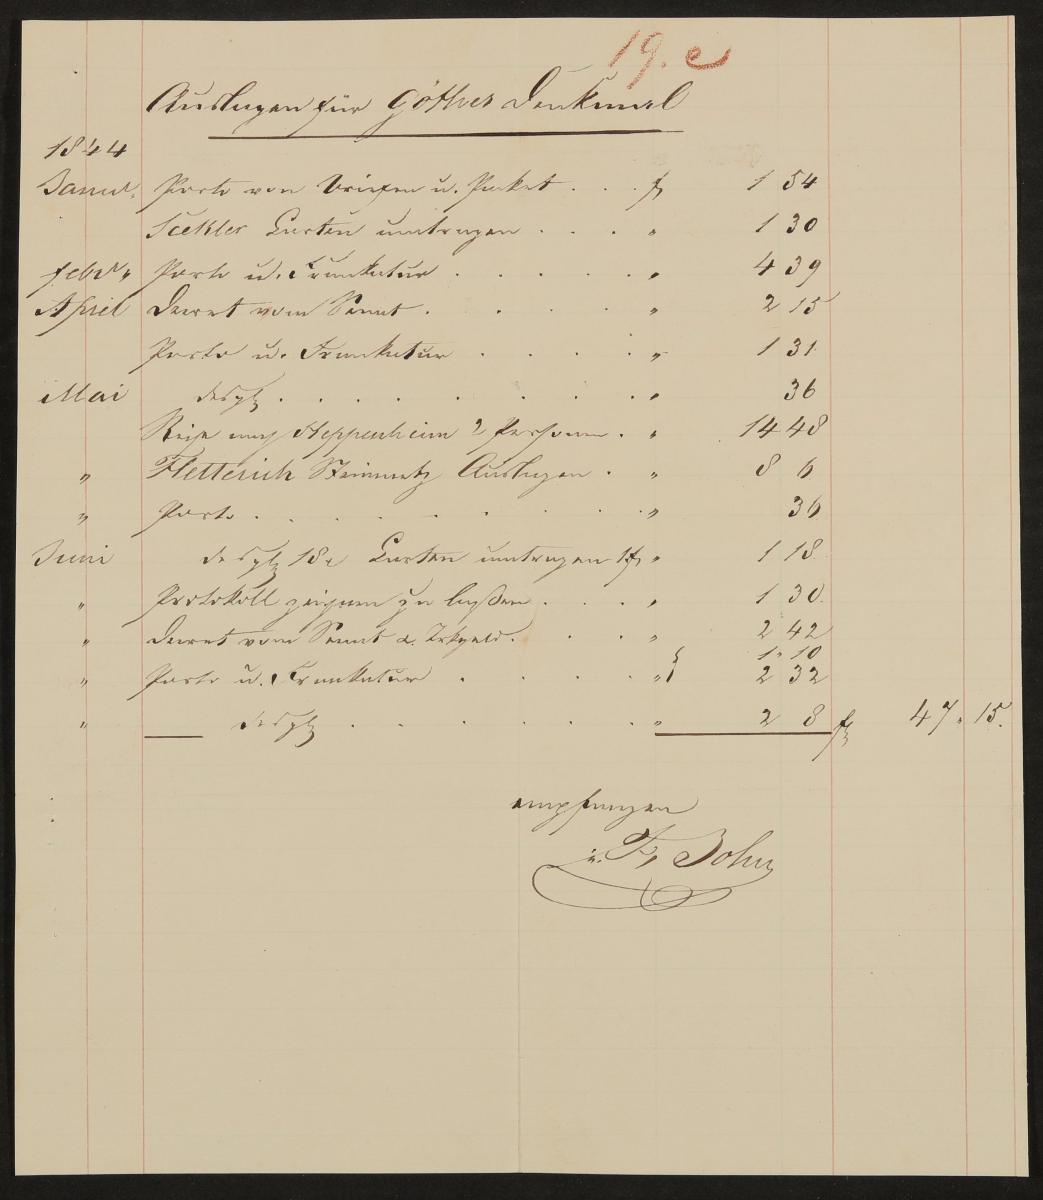 19. e
Auslagen für Göthes Denkmal
1844
Januar. Porto von Briefen u. Paket . . . f 1 54
Karten umtragen . . . . " 1 30
Febr. " Porto u. Frankatur . . . . . " 4 39
April Decret vom Senat . . . . . " 2 15
Porto u. Frankatur . . . . . " 1 31
Mai desgl . . . . . . . . " 36
Reise nach Heppenheim 2 Personen . " 14 48
" Fletterich Steinmetz Auslagen . " 8 6
" Porto . . . . . . . . . " 36
Juni desgl 18x Karten umtragen 1f " 1 18
" Protokoll zeichnen zu laßen . . . . " 1 30.
" Decret vom Senat u. Trkgeld . . . " 2 42
1 " 10
" Porto u. Frankatur . . . . . " { 2 32
" desgl . . . . . . . " 2 8 f 47 " 15.
empfangen
Fr. Bohn